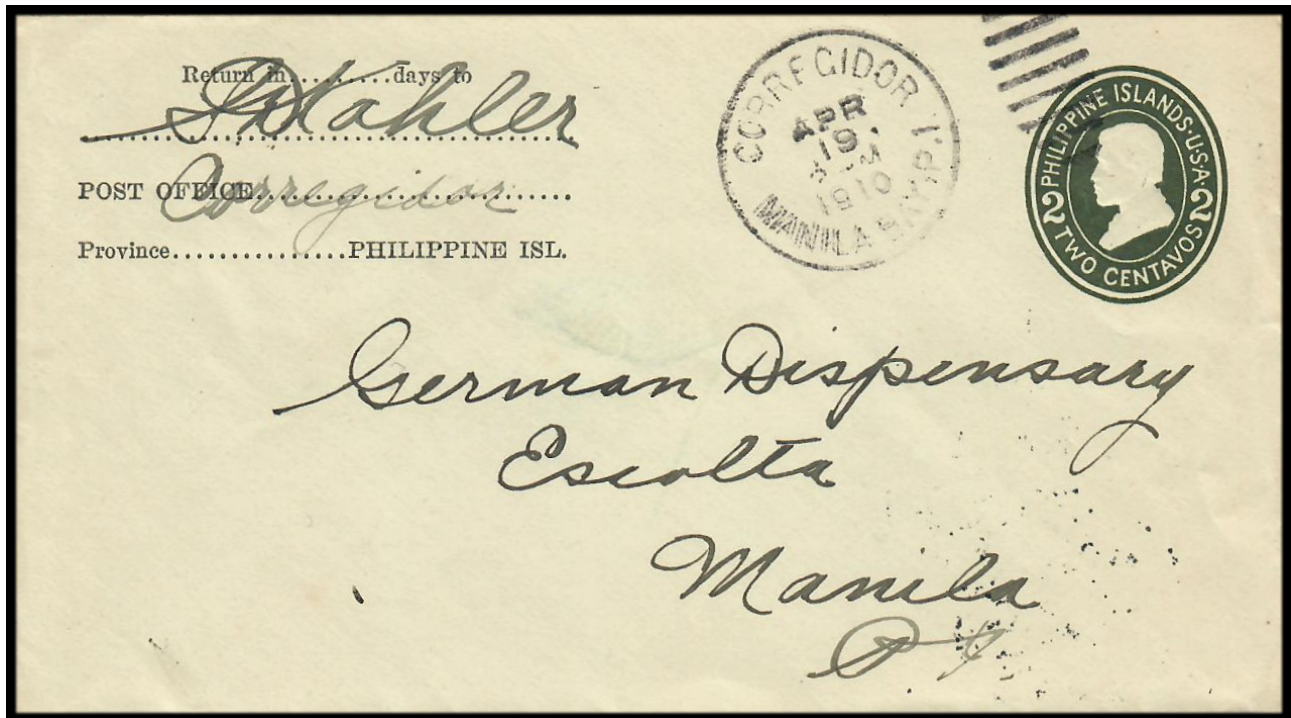 Return in..........days to
Mahler
POST OFFICE..............................
Corregidor
Province................PHILIPPINE ISL.
CORREGIDOR I.
APR
19
1910
MANILA BAY, P.I.
PHILIPPINE ISLANDS·U·S·A·
2 TWO CENTAVOS 2
German Dispensary
Escolta
Manila
P I